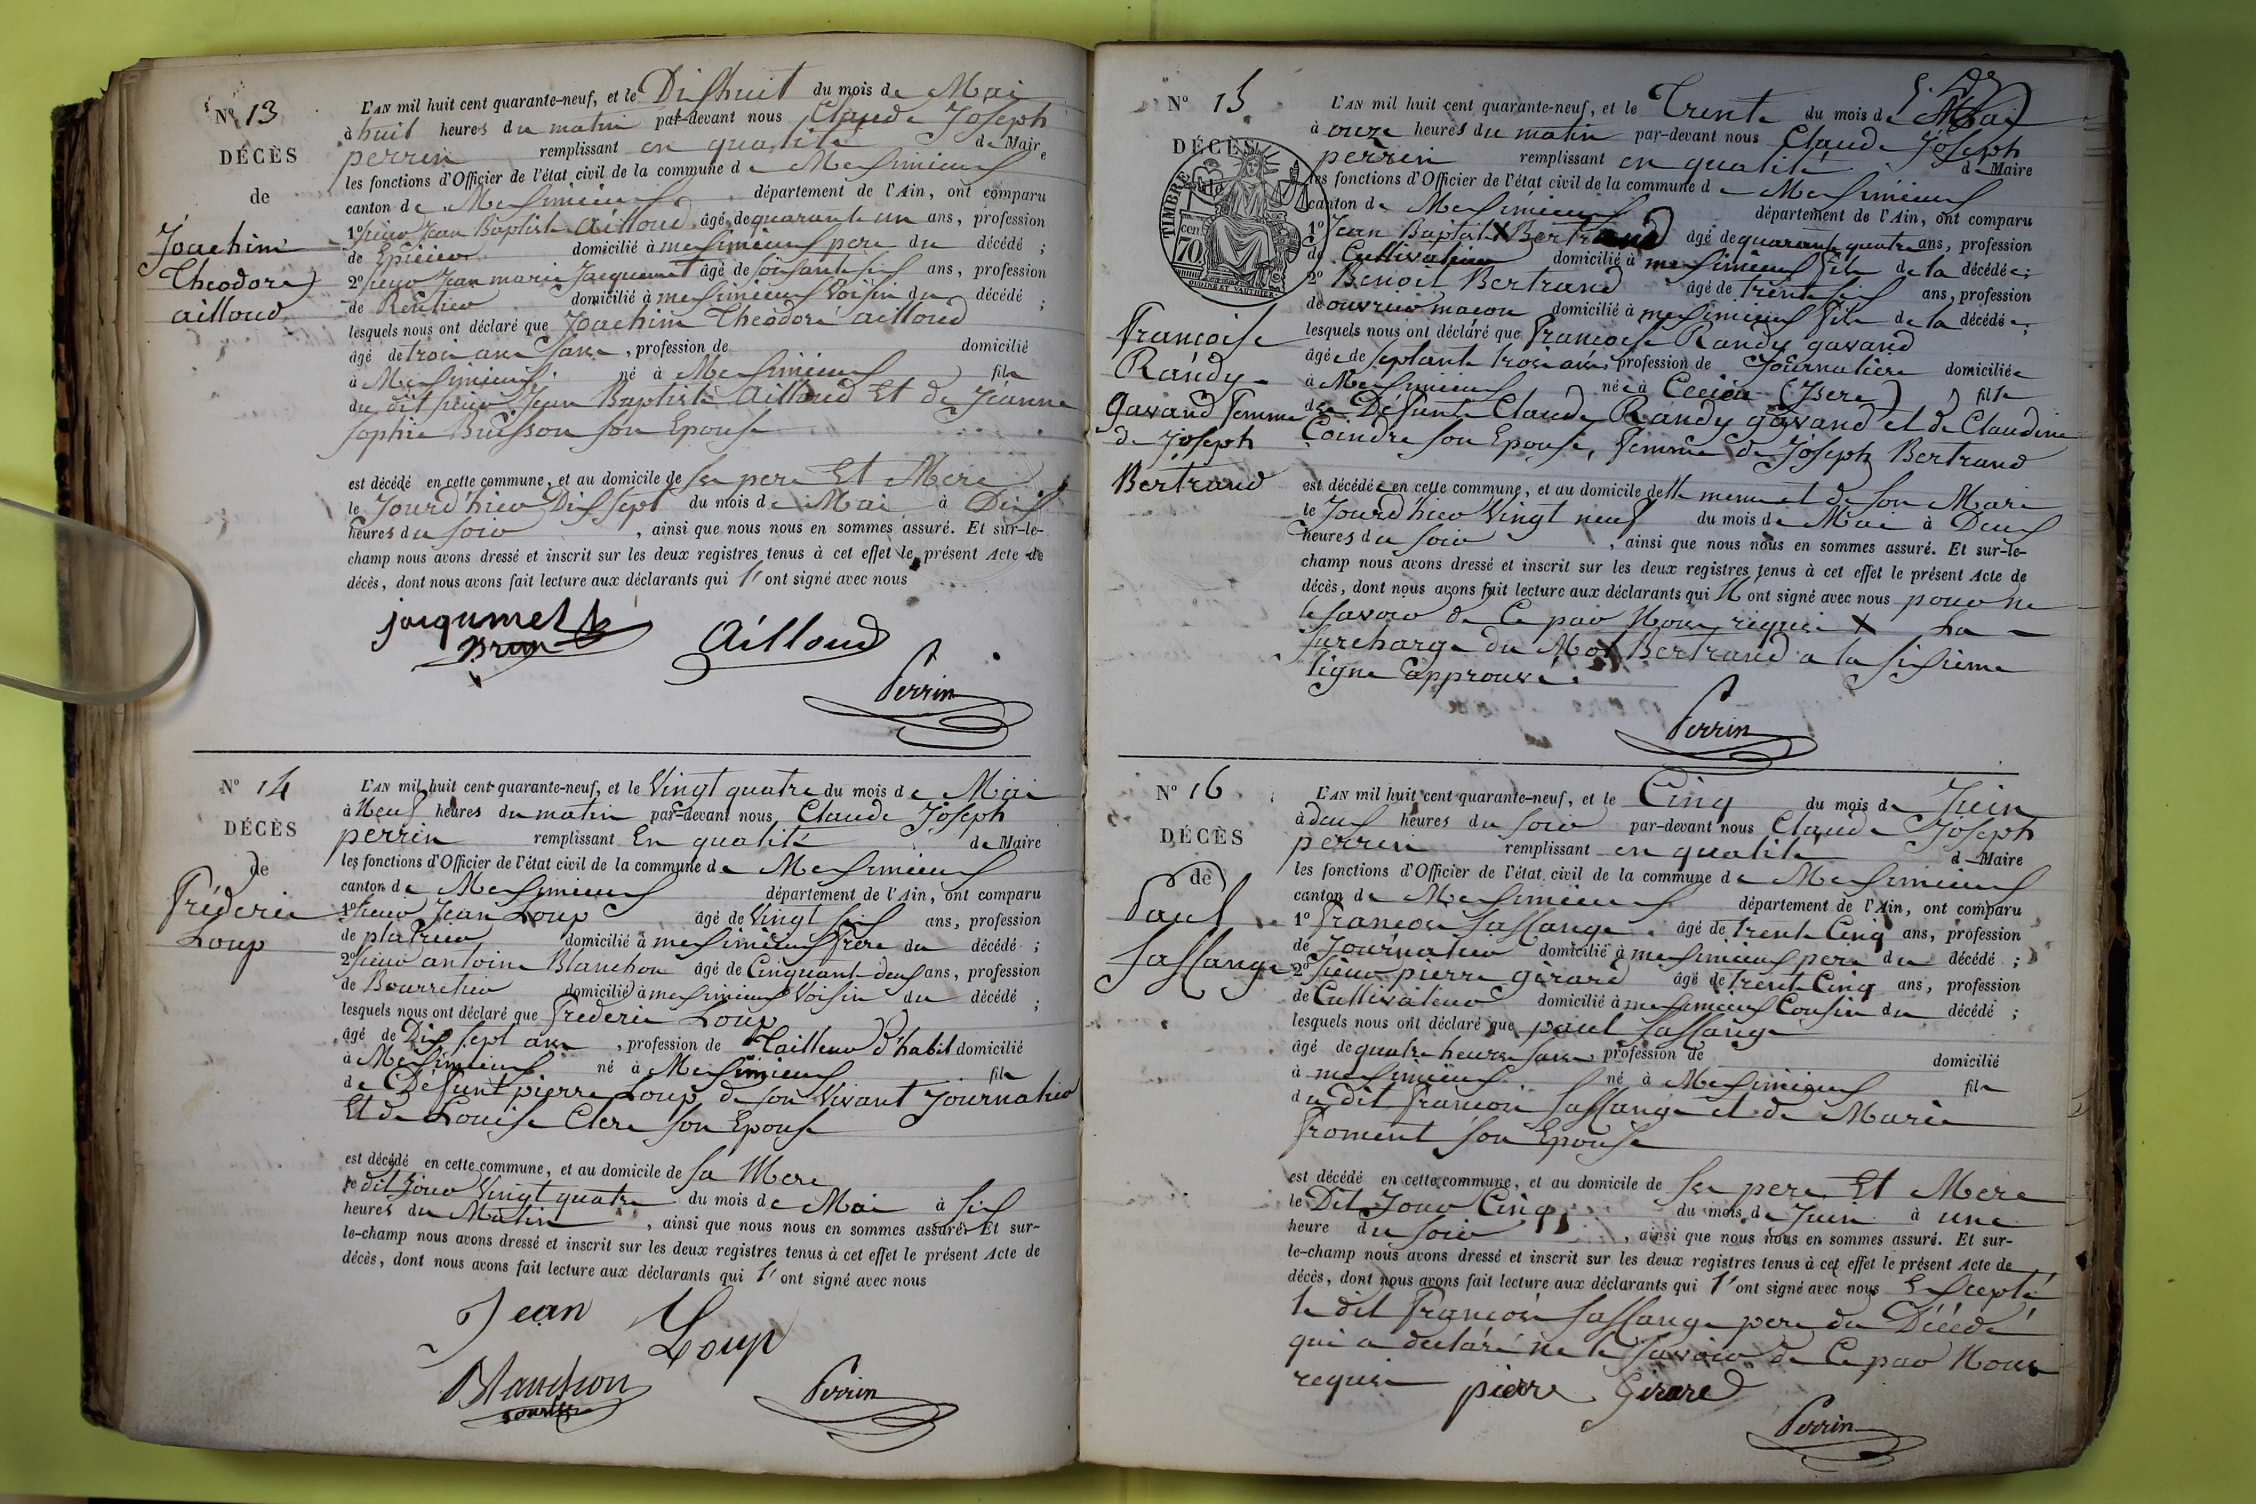 Nº 13
DÉCÈS
de
Joachim
Theodore
ailloud
L'AN mil huit cent quarante-neuf, et le Dixhuit du mois de Mai
à huit heures du matin par-devant nous Claude Joseph
perrin remplissant en qualité de Maire
les fonctions d'Officier de l'état civil de la commune de Meximieux
canton de Meximieux département de l'Ain, ont comparu
1º sieur Jean Baptiste ailloud âgé de quarante un ans, profession
de Epicier domicilié à meximieux pere du décédé ;
2º sieur Jean marie Jacquemet âgé de soixante six ans, profession
de Rentier domicilié à meximieux Voisin du décédé ;
lesquels nous ont déclaré que Joachim Theodore ailloud
âgé de trois ans sans , profession de domicilié
à Meximieux né à Meximieux fils
du dit sieur Jean Baptiste Ailloud Et de Jeanne
sophie Buisson son Epouse
est décédé en cette commune, et au domicile de ses pere Et Mere
le Jourd'hier Dixsept du mois de Mai à Dix
heures du soir , ainsi que nous nous en sommes assuré. Et sur-le-
champ nous avons dressé et inscrit sur les deux registres tenus à cet effet le présent Acte de
décès, dont nous avons fait lecture aux déclarants qui l' ont signé avec nous
jacqumet
Ailloud
Perrin
Nº 14
DÉCÈS
de
Fréderic
Loup
L'AN mil huit cent quarante-neuf, et le Vingt quatre du mois de Mai
à Neuf heures du matin par-devant nous Claude Joseph
perrin remplissant En qualité de Maire
les fonctions d'Officier de l'état civil de la commune de Meximieux
canton de Meximieux département de l'Ain, ont comparu
1º sieur Jean Loup âgé de Vingt six ans, profession
de platrier domicilié à meximieux frere du décédé ;
2º sieur antoine Blanchon âgé de Cinquante deux ans, profession
de Bourrelier domicilié à meximieux Voisin du décédé ;
lesquels nous ont déclaré que Frederic Loup
âgé de Dix sept ans , profession de Tailleur d'habit domicilié
à Meximieux né à Meximieux fils
de Defunt pierre Loup de son Vivant Journalier
Et de Louise Clere son Epouse
est décédé en cette commune, et au domicile de sa Mere
le dit Jour Vingt quatre du mois de Mai à six
heures du Matin , ainsi que nous nous en sommes assuré. Et sur-
le-champ nous avons dressé et inscrit sur les deux registres tenus à cet effet le présent Acte de
décès, dont nous avons fait lecture aux déclarants qui l' ont signé avec nous
Jean Loup
Blanchon
Perrin
Nº 15
DÉCÈS
TIMBRE
70 cen
Francoise
Randy
Gavand femme
de Joseph
Bertrand
L'AN mil huit cent quarante-neuf, et le Trente du mois de Mai
à onze heures du matin par-devant nous Claude Joseph
perrin remplissant en qualité d Maire
les fonctions d'Officier de l'état civil de la commune de Meximieux
canton de Meximieux département de l'Ain, ont comparu
1º Jean Baptiste X Bertrand âgé de quarante quatre ans, profession
de Cultivateur domicilié à meximieux fils de la décédée ;
2º Benoit Bertrand âgé de trente six ans, profession
de ouvrier macon domicilié à meximieux fils de la décédée ;
lesquels nous ont déclaré que francoise Randy gavand
âgée de septante trois ans, profession de Journalière domiciliée
à Meximieux née à Crecieu (Isere) fille
de Defunts Claude Randy gavand et de Claudine
Coindre son Epouse, femme de Joseph Bertrand
est décédée en cette commune, et au domicile delle meme et de son Mari
le Jourd'hier Vingt neuf du mois de Mai à Deux
heures du soir , ainsi que nous nous en sommes assuré. Et sur-le-
champ nous avons dressé et inscrit sur les deux registres tenus à cet effet le présent Acte de
décès, dont nous avons fait lecture aux déclarants qui N' ont signé avec nous pour ne
le savoir de Ce par Nous requis X La
surcharge du Mot Bertrand a la sixieme
ligne approuvé.
Perrin
Nº 16
DÉCÈS
de
Paul
Sassange
L'AN mil huit cent quarante-neuf, et le Cinq du mois de Juin
à deux heures du soir par-devant nous Claude Joseph
perrin remplissant en qualité d Maire
les fonctions d'Officier de l'état civil de la commune de Meximieux
canton de Meximieux département de l'Ain, ont comparu
1º francois Sassange âgé de trente Cinq ans, profession
de Journalier domicilié à meximieux pere du décédé ;
2º sieur pierre girard âgé de trente Cinq ans, profession
de Cultivateur domicilié à meximieux Cousin du décédé ;
lesquels nous ont déclaré que paul Sassange
âgé de quatre heures sans profession de domicilié
à meximieux né à Meximieux fils
du dit francois Sassange et de Marie
froment son Epouse
est décédé en cette commune, et au domicile de ses pere Et Mere
le Dit Jour Cinq du mois de Juin à une
heure du soir , ainsi que nous nous en sommes assuré. Et sur-
le-champ nous avons dressé et inscrit sur les deux registres tenus à cet effet le présent Acte de
décès, dont nous avons fait lecture aux déclarants qui l' ont signé avec nous Excepté
le dit francois Sassange pere du Décédé
qui a declaré ne le savoir de Ce par Nous
requis
pierre Girard
Perrin